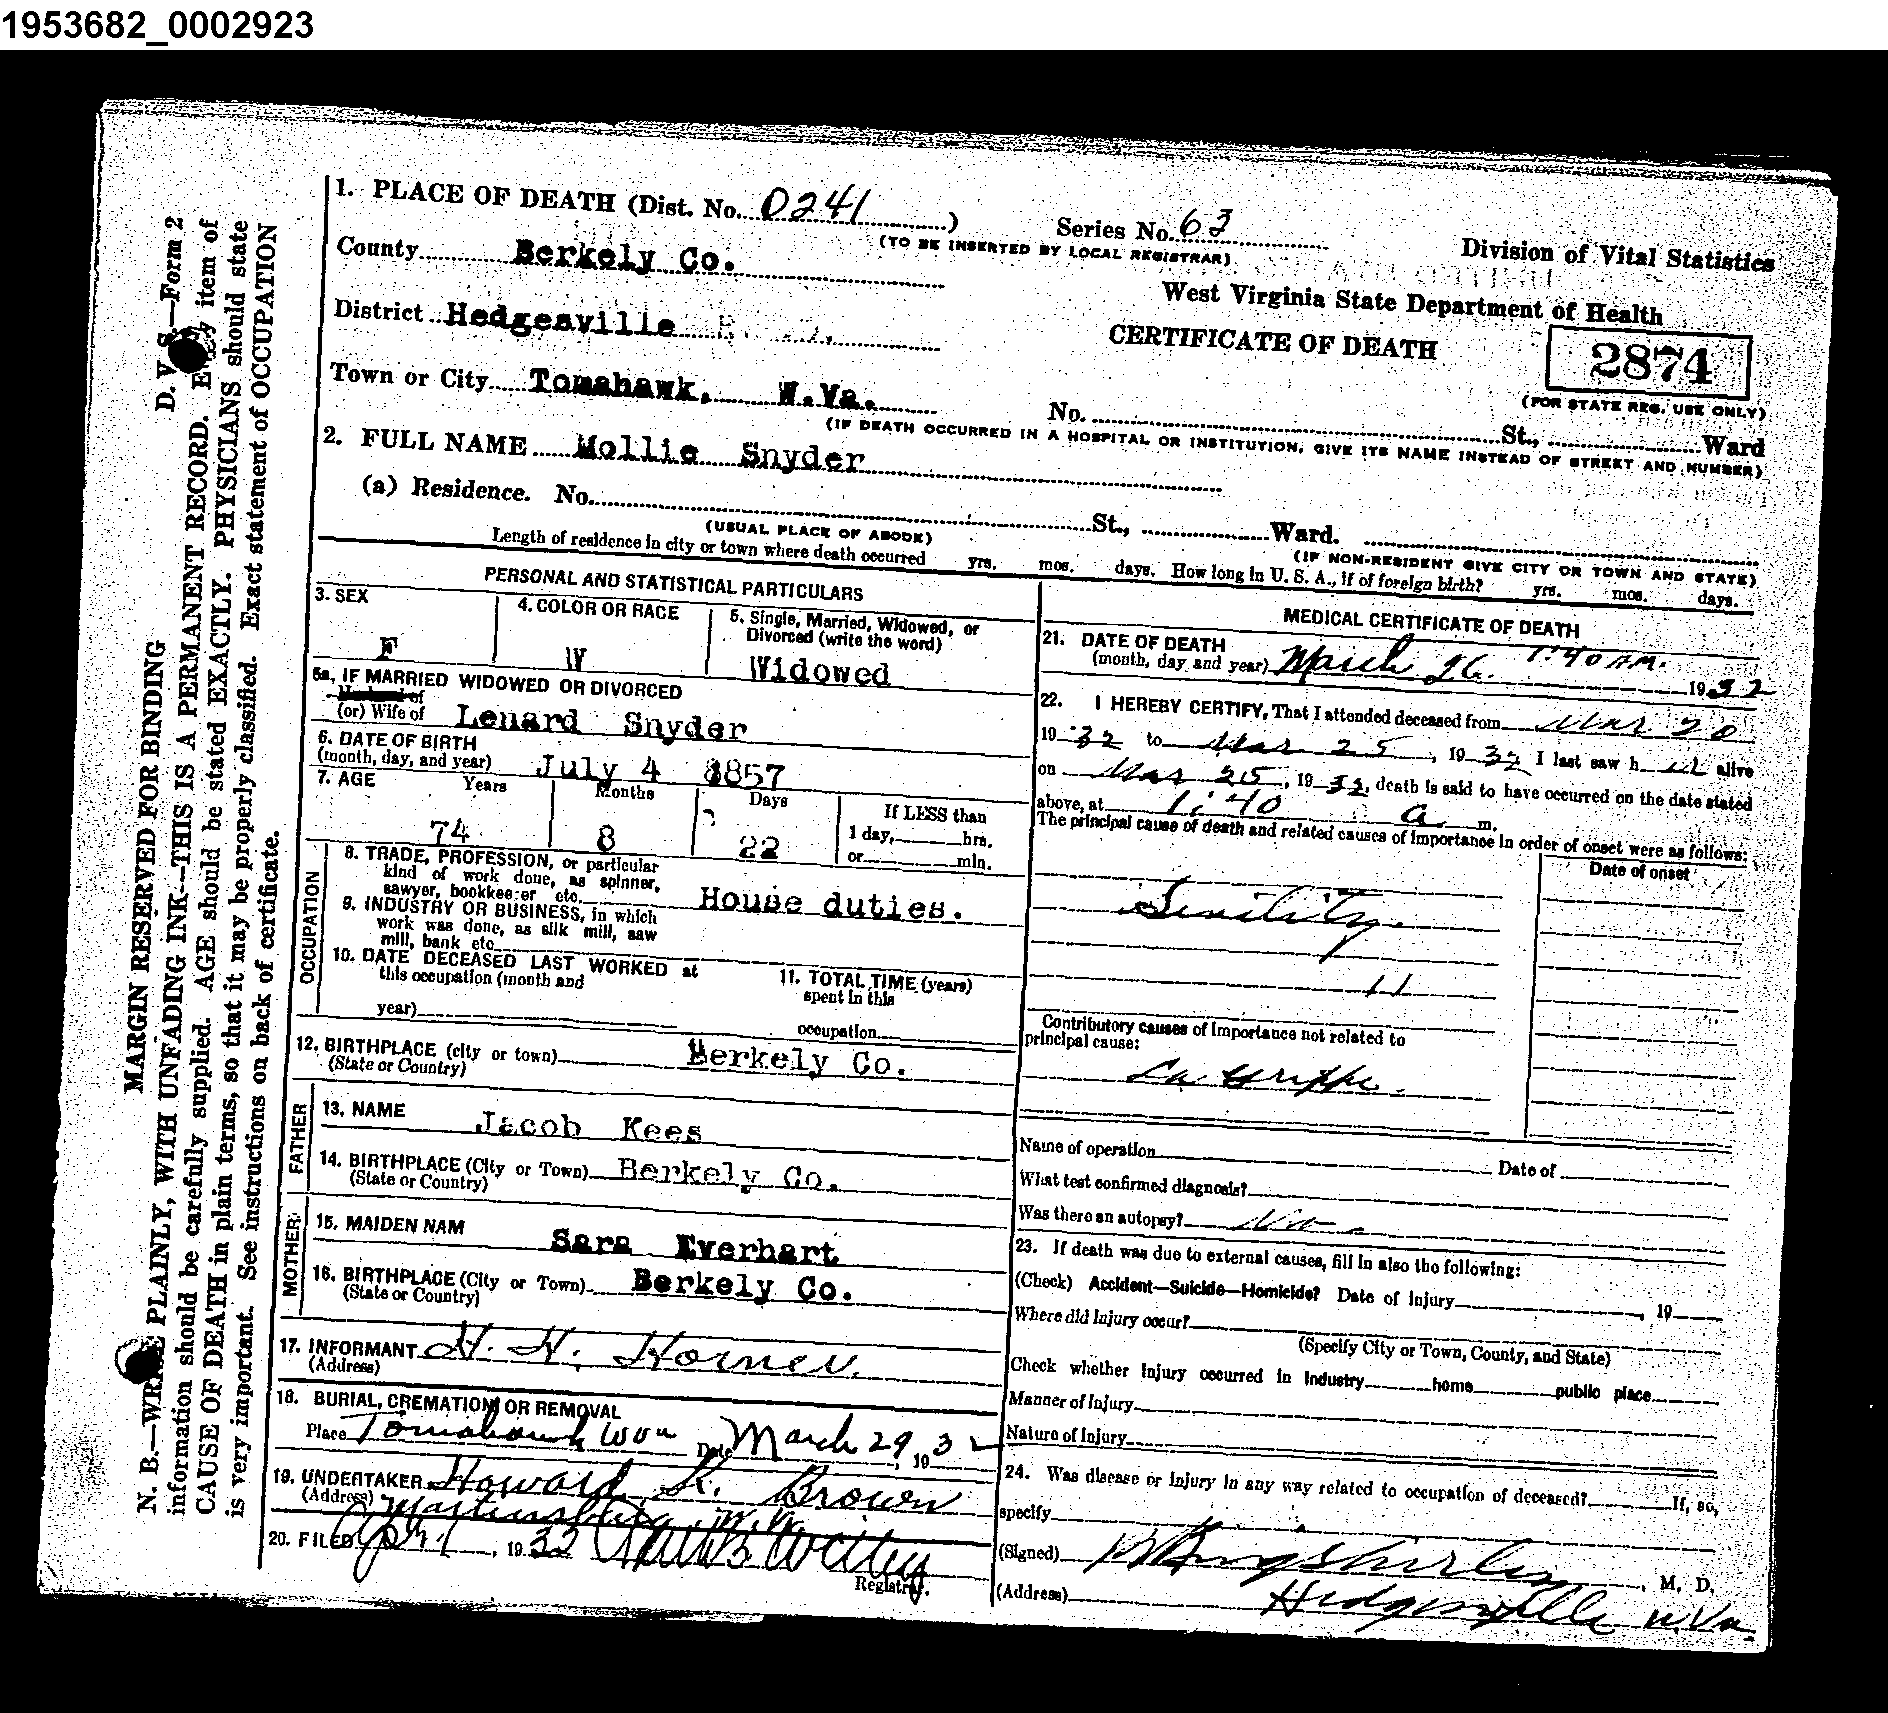 1953682_0002923
1. PLACE OF DEATH (Dist. No. 0241)
Series No. 63
(TO BE INSERTED BY LOCAL REGISTRAR)
County Berkely Co.
Division of Vital Statistics
West Virginia State Department of Health
District Hedgesville
CERTIFICATE OF DEATH
2874
(FOR STATE REG. USE ONLY)
Town or City Tomahawk, W.Va.
No. St., Ward
(IF DEATH OCCURRED IN A HOSPITAL OR INSTITUTION, GIVE ITS NAME INSTEAD OF STREET AND NUMBER)
2. FULL NAME Mollie Snyder
(a) Residence. No. St., Ward.
(USUAL PLACE OF ABODE)
(IF NON-RESIDENT GIVE CITY OR TOWN AND STATE)
Length of residence in city or town where death occurred yrs. mos. days. How long in U. S. A., if of foreign birth? yrs. mos. days.
PERSONAL AND STATISTICAL PARTICULARS
3. SEX
F
4. COLOR OR RACE
W
5. Single, Married, Widowed, or
Divorced (write the word)
Widowed
5a, IF MARRIED WIDOWED OR DIVORCED
Husband of
(or) Wife of Lenard Snyder
6. DATE OF BIRTH
(month, day, and year) July 4 1857
7. AGE Years Months Days
If LESS than
1 day, hrs.
or min.
74 8 22
OCCUPATION
8. TRADE, PROFESSION, or particular
kind of work done, as spinner,
sawyer, bookkeeper etc. House duties.
9. INDUSTRY OR BUSINESS, in which
work was done, as silk mill, saw
mill, bank etc
10. DATE DECEASED LAST WORKED at
this occupation (month and
year)
11. TOTAL TIME (years)
spent in this
occupation
12. BIRTHPLACE (city or town) Berkely Co.
(State or Country)
FATHER
13. NAME Jacob Kees
14. BIRTHPLACE (City or Town) Berkely Co.
(State or Country)
MOTHER
15. MAIDEN NAM Sara Everhart
16. BIRTHPLACE (City or Town) Berkely Co.
(State or Country)
17. INFORMANT H. H. Horner.
(Address)
18. BURIAL, CREMATION OR REMOVAL
Place Tomahawk Date March 29, 1932
19. UNDERTAKER Howard K. Brown
(Address) Martinsburg W.Va
20. FILED Apr 1, 1932
Registrar.
MEDICAL CERTIFICATE OF DEATH
21. DATE OF DEATH
(month, day and year) March 26. 1:40 AM. 1932
22. I HEREBY CERTIFY, That I attended deceased from Mar 20
1932 to Mar 25, 1932 I last saw her alive
on Mar 25, 1932, death is said to have occurred on the date stated
above, at 1:40 a m.
The principal cause of death and related causes of importance in order of onset were as follows:
Date of onset
Senility.
11
Contributory causes of importance not related to
principal cause:
La Grippe.
Name of operation Date of
What test confirmed diagnosis?
Was there an autopsy? No.
23. If death was due to external causes, fill in also the following:
(Check) Accident—Suicide—Homicide? Date of Injury , 19
Where did injury occur?
(Specify City or Town, County, and State)
Check whether Injury occurred in Industry home public place
Manner of Injury
Nature of Injury
24. Was disease or injury in any way related to occupation of deceased? If, so,
specify
(Signed) , M. D.
(Address) Hedgesville W.Va.
MARGIN RESERVED FOR BINDING
D. V. S.—Form 2
N. B.—WRITE PLAINLY, WITH UNFADING INK—THIS IS A PERMANENT RECORD. Every item of
information should be carefully supplied. AGE should be stated EXACTLY. PHYSICIANS should state
CAUSE OF DEATH in plain terms, so that it may be properly classified. Exact statement of OCCUPATION
is very important. See instructions on back of certificate.